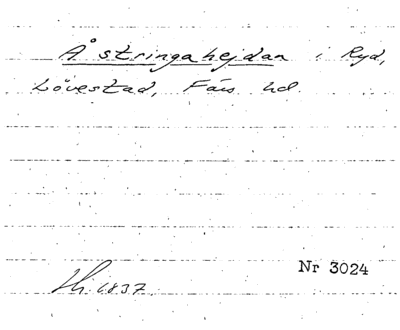 Åstringahejdan i Ryd,
Lövestad, Färs hd.
Nr 3024
1837.